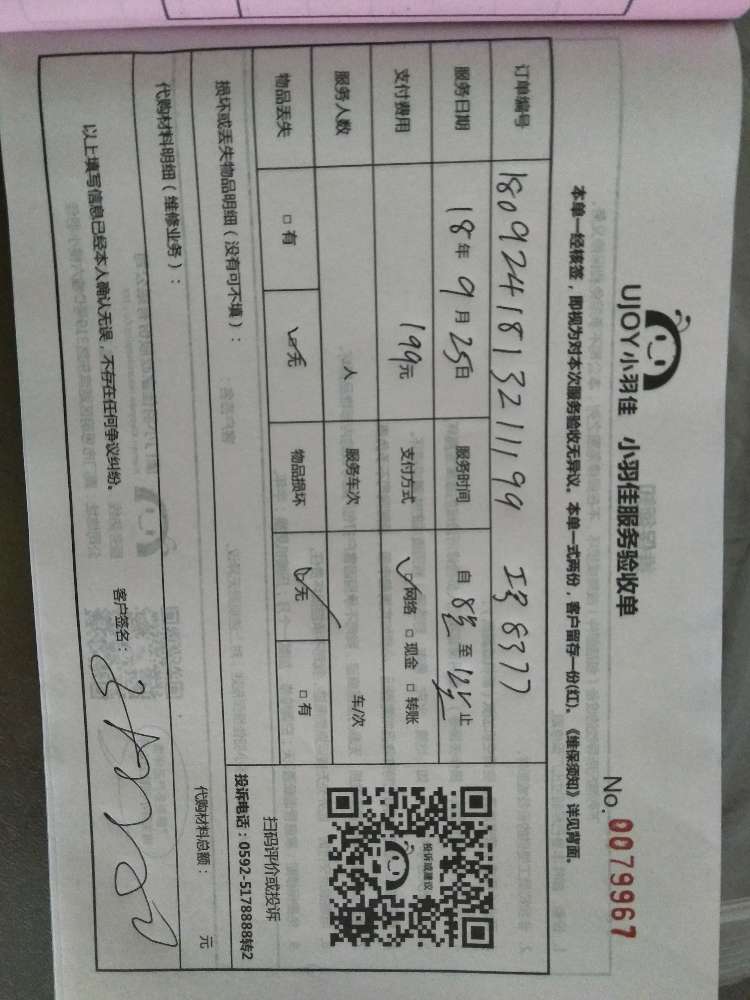 UJOY小羽佳 小羽佳服务验收单
No. 0079967
本单一经核签，即视为对本次服务验收无异议。本单一式两份，客户留存一份(红)。《维保须知》详见背面。
订单编号 1809241813211199 工号8377
服务日期 18年9月25日 服务时间 自 8 至 12 止
支付费用 199元 支付方式 ☑网络 □现金 □转账
服务人数 人 服务车次 车/次
物品丢失 □有 ☑无 物品损坏 ☑无 □有
投诉或建议
扫码评价或投诉
投诉电话：0592-5178888转2
损坏或丢失物品明细（没有可不填）：
代购材料明细（维修业务）： 代购材料总额： 元
以上填写信息已经本人确认无误，不存在任何争议纠纷。 客户签名：